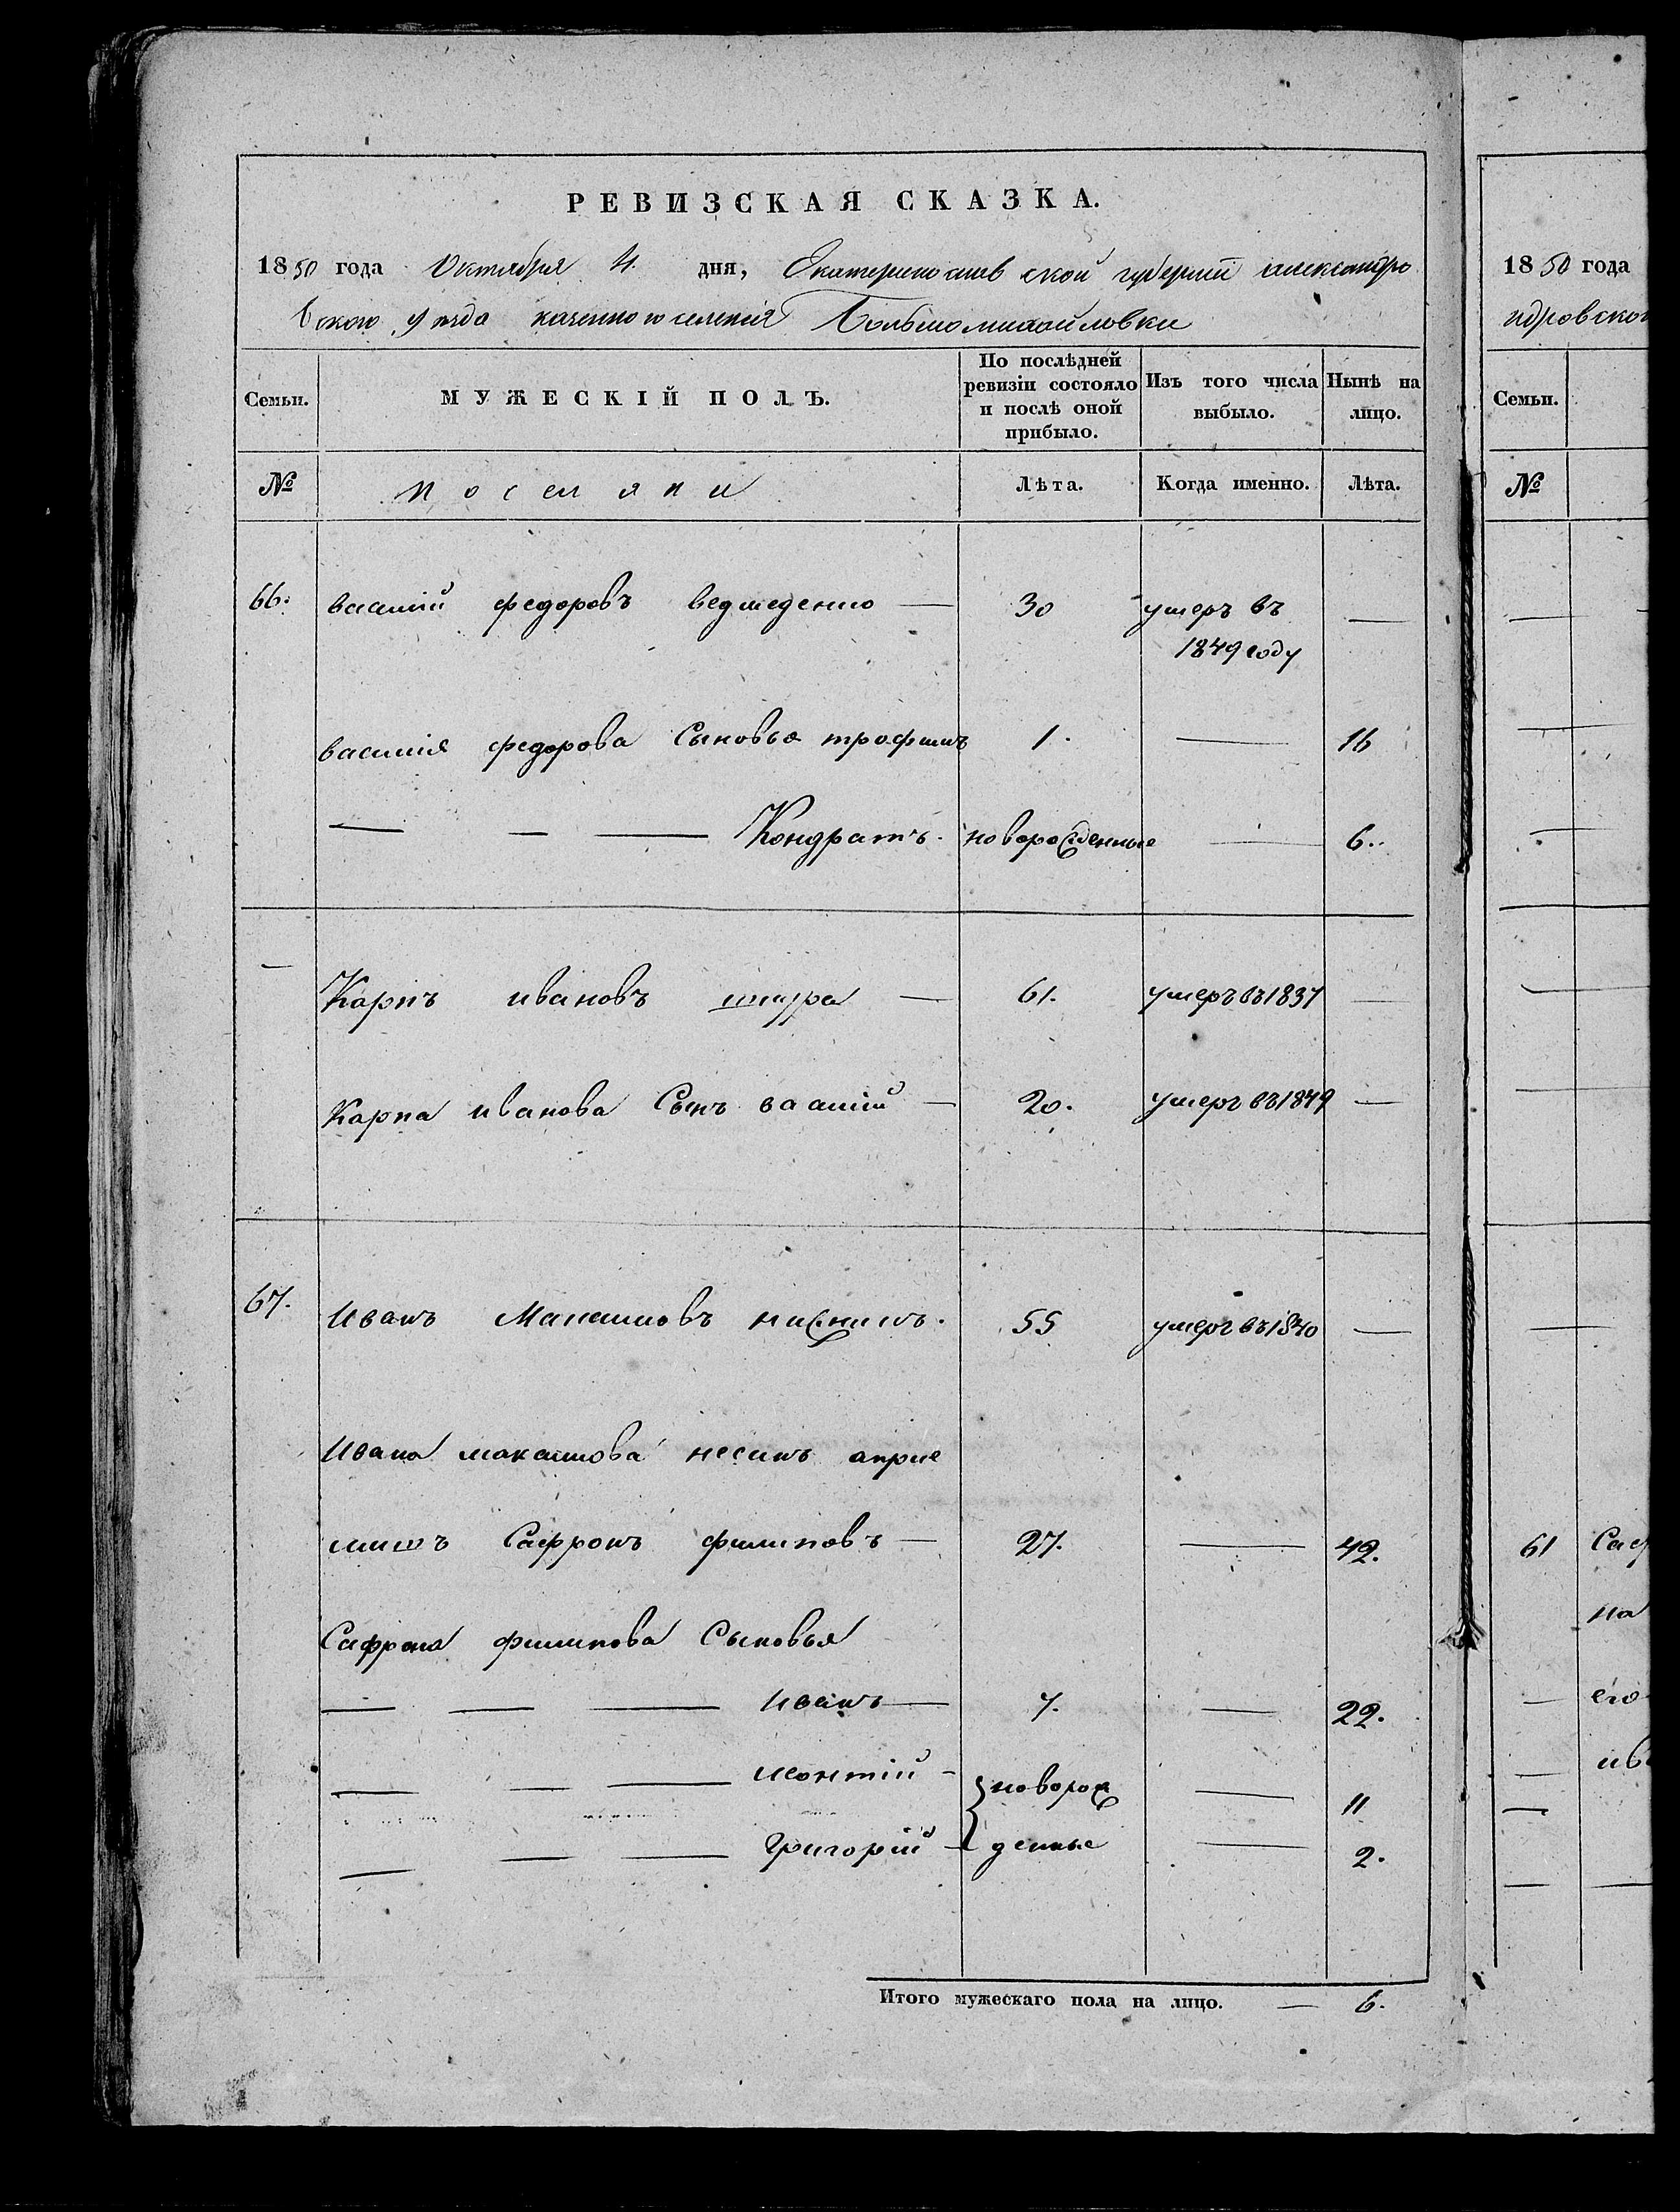 РЕВИЗСКАЯ СКАЗКА.
1850 года Октября 4. дня, Екатеринослав ской губернии александро
вскаго уезда казеннаго селения Большомихайловки
Семьи. МУЖЕСКІЙ ПОЛЪ. По послѣдней ревизіи состояло и послѣ оной прибыло. Изъ того числа выбыло. Нынѣ на лицо.
№ поселяни Лѣта. Когда именно. Лѣта.
66. василій федоровъ ведмеденко — 30 умеръ въ —
1849 году
василія федорова Сыновья трофимъ 1. — 16
— — — Кондратъ. новорожденные — 6.
— Карпъ ивановъ шкура — 61. умеръ въ 1837 —
Карпа иванова Сынъ василій — 20. умеръ въ 1849 —
67. Иванъ Максимовъ 55 умеръ въ 1840 —
Ивана максимова прие
мишъ Сафронъ филиповъ — 27. — 42.
Сафрона филипова Сыновья
— — — иванъ — 7. — 22.
— — — леонтій — } новорож — 11
— — — Григорій — денные — 2.
Итого мужескаго пола на лицо. — 6.
1850 года
ндровског
Семьи.
№
61 Саф
на
— его
— ив